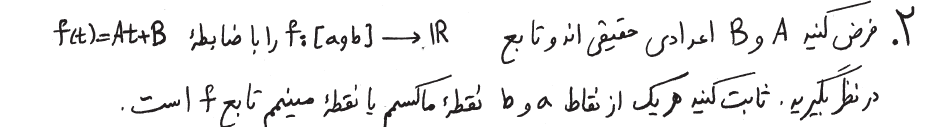 ۲. فرض کنید A و B اعدادی حقیقی اند و تابع f: [a و b] → ℝ را با ضابطهٔ f(t)=At+B
در نظر بگیرید. ثابت کنید هر یک از نقاط a و b نقطهٔ ماکسیمم یا نقطهٔ مینیمم تابع f است.